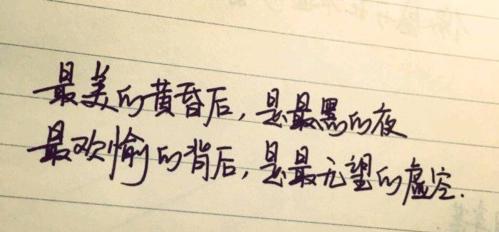 最美的黄昏后，是最黑的夜
最欢愉的背后，是最无望的虚空.